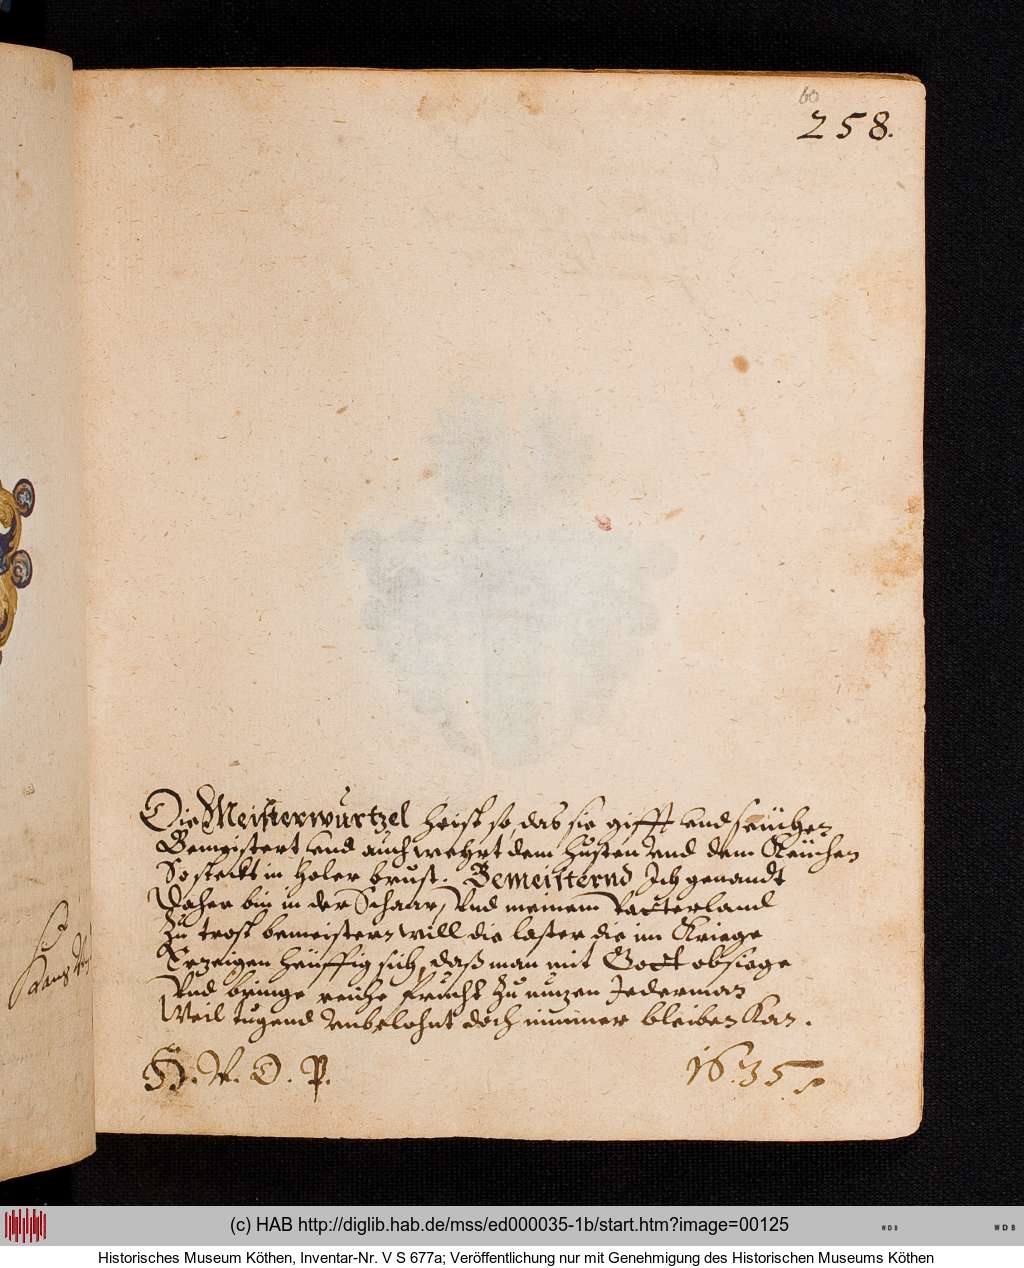 60
258.
Die Meisterwurtzel heist so, das sie gifft und seüchen
Bemeistert und auch wehrt dem husten und dem Keüchen
So steckt in holer brust. Bemeisternd Ich genandt
Daher bin in der Schaar, Und meinem Vatterland
Zu trost bemeistern will die laster die im Kriege
Erzeigen heüffig sich, daß man mit Gott obsiege
Und bringe reiche frucht zu nuzen Jederman
Weil tugend unbelohnt doch immer bleiben Kan.
H. V. O. P. 1635.
Hans
(c) HAB http://diglib.hab.de/mss/ed000035-1b/start.htm?image=00125
WDB WDB
Historisches Museum Köthen, Inventar-Nr. V S 677a; Veröffentlichung nur mit Genehmigung des Historischen Museums Köthen